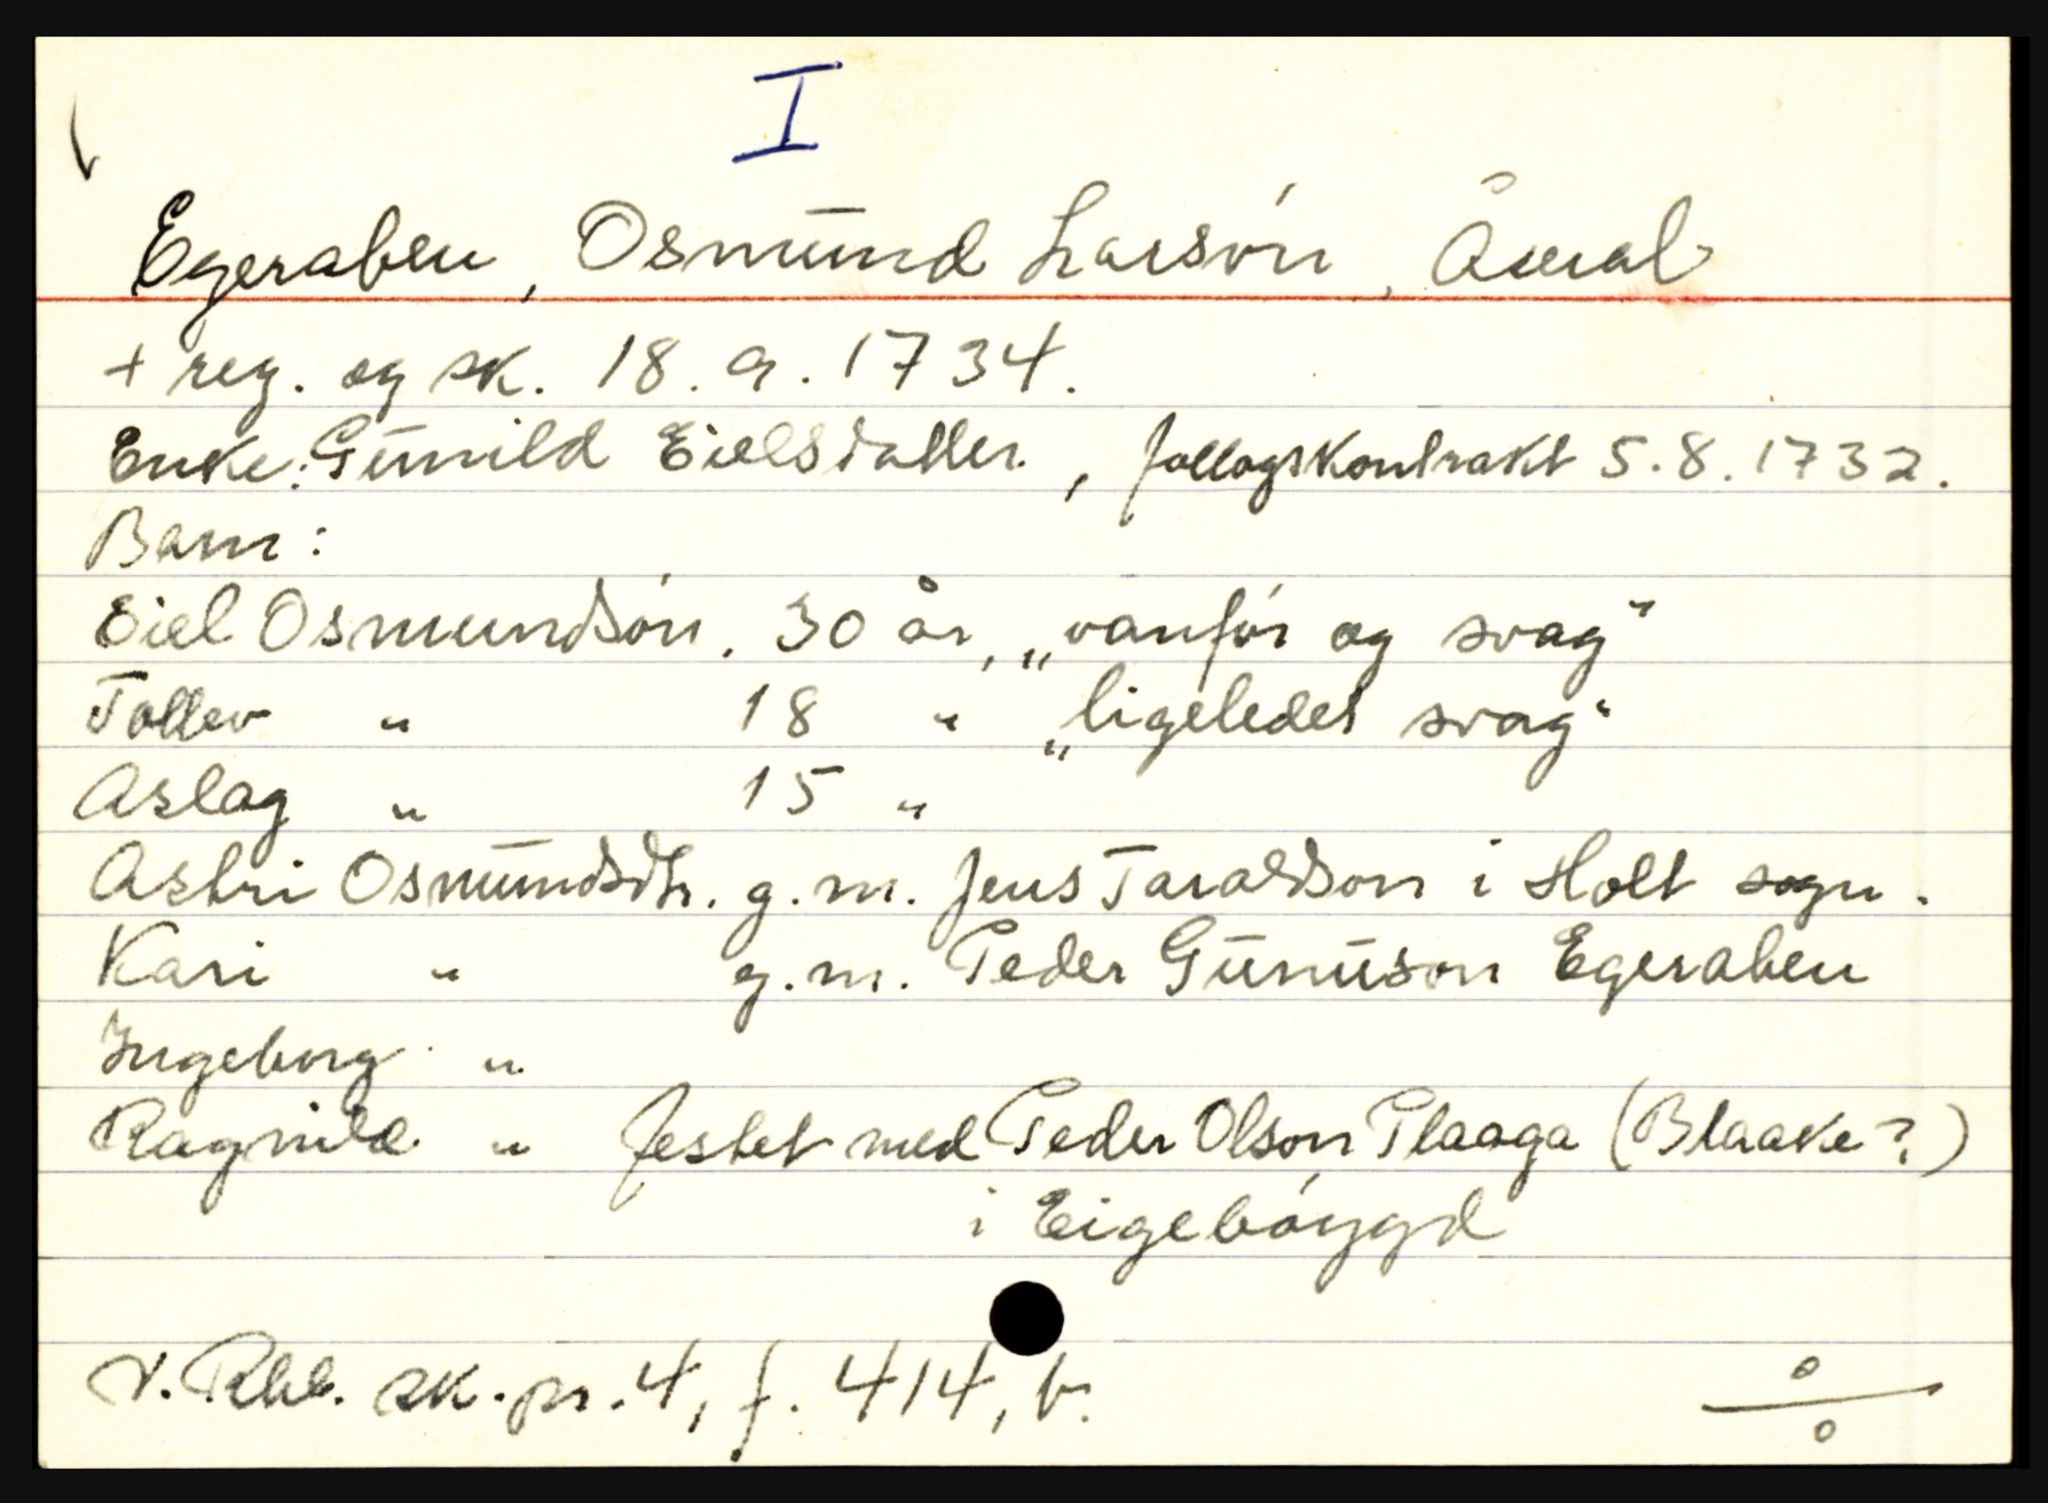 I
Egeraben, Osmund Larsón, Åmral
+ reg. og sk. 18. 9. 1734.
Enke: Gunnild Eielsdatter, follogskontrakt 5.8.1732.
Barn:
Eiel Osmundsón, 30 år, „vanfór og svag"
Tollev " 18 " „ligeledes svag"
Aslag " 15 "
Astri Osmundsdtr. g.m. Jens Taraldson i Holt sogn.
Kari " g.m. Peder Gunnuson Egeraben
Ingeborg "
Ragnild " festet med Peder Olson Plaaga (Blaake?)
i Eigebóygd
N. Rbl. sk. pr. 4, f. 414, b.